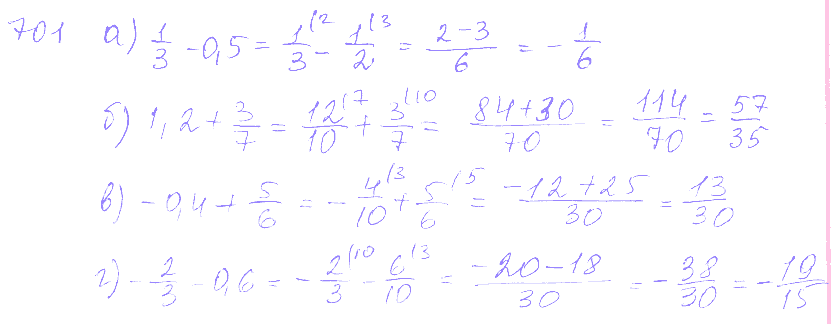 701 а) 1/3 - 0,5 = 1/3 (2 - 1/2 (3 = (2-3)/6 = - 1/6
б) 1,2 + 3/7 = 12/10 (7 + 3/7 (10 = (84+30)/70 = 114/70 = 57/35
в) -0,4 + 5/6 = - 4/10 (3 + 5/6 (5 = (-12+25)/30 = 13/30
г) - 2/3 - 0,6 = - 2/3 (10 - 6/10 (3 = (-20-18)/30 = - 38/30 = - 19/15